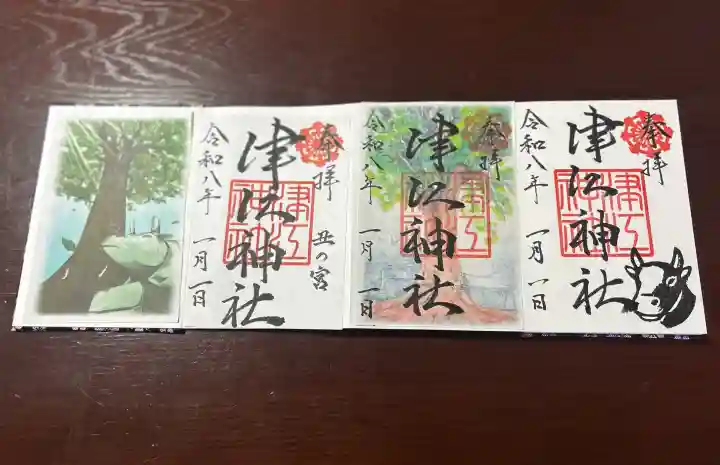 奉拝
丑の宮
津江神社
津江神社
令和八年 一月一日
奉拝
津江神社
令和八年 一月一日
奉拝
津江神社
津江神社
令和八年 一月一日